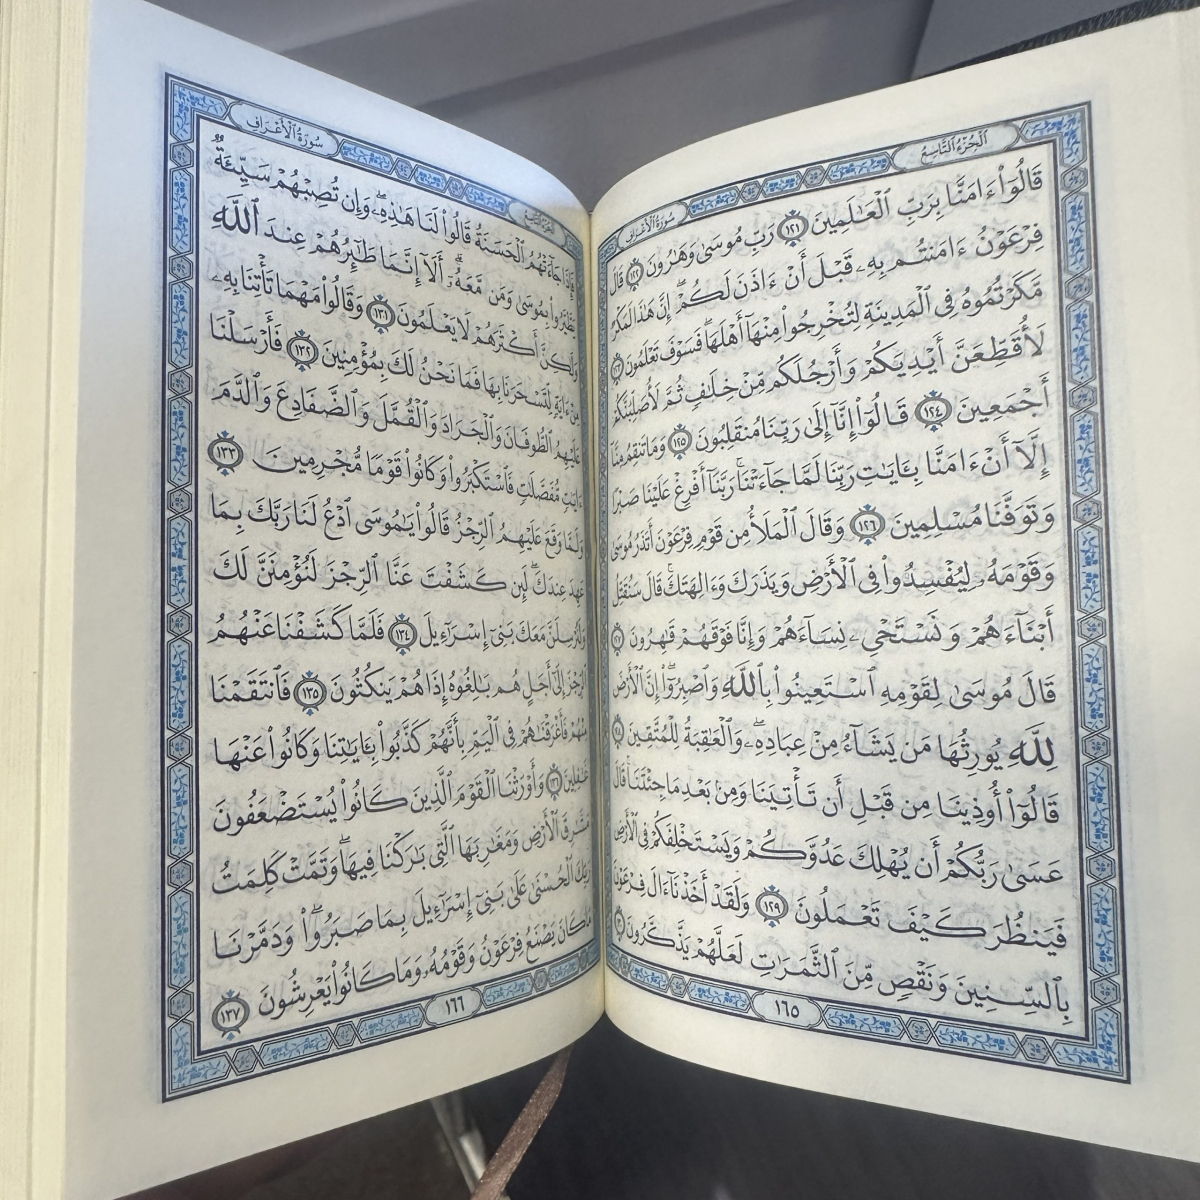 الجُزْءُ التَّاسِعُ
سُورَةُ الأَعْرَافِ
قَالُوٓاْ ءَامَنَّا بِرَبِّ ٱلْعَٰلَمِينَ ١٢١ رَبِّ مُوسَىٰ وَهَٰرُونَ ١٢٢ قَالَ
فِرْعَوْنُ ءَامَنتُم بِهِۦ قَبْلَ أَنْ ءَاذَنَ لَكُمْ ۖ إِنَّ هَٰذَا لَمَكْرٌ
مَّكَرْتُمُوهُ فِى ٱلْمَدِينَةِ لِتُخْرِجُواْ مِنْهَآ أَهْلَهَا ۖ فَسَوْفَ تَعْلَمُونَ ١٢٣
لَأُقَطِّعَنَّ أَيْدِيَكُمْ وَأَرْجُلَكُم مِّنْ خِلَٰفٍ ثُمَّ لَأُصَلِّبَنَّكُمْ
أَجْمَعِينَ ١٢٤ قَالُوٓاْ إِنَّآ إِلَىٰ رَبِّنَا مُنقَلِبُونَ ١٢٥ وَمَا تَنقِمُ مِنَّآ
إِلَّآ أَنْ ءَامَنَّا بِـَٔايَٰتِ رَبِّنَا لَمَّا جَآءَتْنَا ۚ رَبَّنَآ أَفْرِغْ عَلَيْنَا صَبْرًا
وَتَوَفَّنَا مُسْلِمِينَ ١٢٦ وَقَالَ ٱلْمَلَأُ مِن قَوْمِ فِرْعَوْنَ أَتَذَرُ مُوسَىٰ
وَقَوْمَهُۥ لِيُفْسِدُواْ فِى ٱلْأَرْضِ وَيَذَرَكَ وَءَالِهَتَكَ ۚ قَالَ سَنُقَتِّلُ
أَبْنَآءَهُمْ وَنَسْتَحْىِۦ نِسَآءَهُمْ وَإِنَّا فَوْقَهُمْ قَٰهِرُونَ ١٢٧
قَالَ مُوسَىٰ لِقَوْمِهِ ٱسْتَعِينُواْ بِٱللَّهِ وَٱصْبِرُوٓاْ ۖ إِنَّ ٱلْأَرْضَ
لِلَّهِ يُورِثُهَا مَن يَشَآءُ مِنْ عِبَادِهِۦ ۖ وَٱلْعَٰقِبَةُ لِلْمُتَّقِينَ ١٢٨
قَالُوٓاْ أُوذِينَا مِن قَبْلِ أَن تَأْتِيَنَا وَمِنۢ بَعْدِ مَا جِئْتَنَا ۚ قَالَ
عَسَىٰ رَبُّكُمْ أَن يُهْلِكَ عَدُوَّكُمْ وَيَسْتَخْلِفَكُمْ فِى ٱلْأَرْضِ
فَيَنظُرَ كَيْفَ تَعْمَلُونَ ١٢٩ وَلَقَدْ أَخَذْنَآ ءَالَ فِرْعَوْنَ
بِٱلسِّنِينَ وَنَقْصٍ مِّنَ ٱلثَّمَرَٰتِ لَعَلَّهُمْ يَذَّكَّرُونَ ١٣٠
١٦٥
الجُزْءُ التَّاسِعُ
سُورَةُ الأَعْرَافِ
فَإِذَا جَآءَتْهُمُ ٱلْحَسَنَةُ قَالُواْ لَنَا هَٰذِهِۦ ۖ وَإِن تُصِبْهُمْ سَيِّئَةٌ
يَطَّيَّرُواْ بِمُوسَىٰ وَمَن مَّعَهُۥٓ ۗ أَلَآ إِنَّمَا طَٰٓئِرُهُمْ عِندَ ٱللَّهِ
وَلَٰكِنَّ أَكْثَرَهُمْ لَا يَعْلَمُونَ ١٣١ وَقَالُواْ مَهْمَا تَأْتِنَا بِهِۦ
مِنْ ءَايَةٍ لِّتَسْحَرَنَا بِهَا فَمَا نَحْنُ لَكَ بِمُؤْمِنِينَ ١٣٢ فَأَرْسَلْنَا
عَلَيْهِمُ ٱلطُّوفَانَ وَٱلْجَرَادَ وَٱلْقُمَّلَ وَٱلضَّفَادِعَ وَٱلدَّمَ
ءَايَٰتٍ مُّفَصَّلَٰتٍ فَٱسْتَكْبَرُواْ وَكَانُواْ قَوْمًا مُّجْرِمِينَ ١٣٣
وَلَمَّا وَقَعَ عَلَيْهِمُ ٱلرِّجْزُ قَالُواْ يَٰمُوسَى ٱدْعُ لَنَا رَبَّكَ بِمَا
عَهِدَ عِندَكَ ۖ لَئِن كَشَفْتَ عَنَّا ٱلرِّجْزَ لَنُؤْمِنَنَّ لَكَ
وَلَنُرْسِلَنَّ مَعَكَ بَنِىٓ إِسْرَٰٓءِيلَ ١٣٤ فَلَمَّا كَشَفْنَا عَنْهُمُ
ٱلرِّجْزَ إِلَىٰٓ أَجَلٍ هُم بَٰلِغُوهُ إِذَا هُمْ يَنكُثُونَ ١٣٥ فَٱنتَقَمْنَا
مِنْهُمْ فَأَغْرَقْنَٰهُمْ فِى ٱلْيَمِّ بِأَنَّهُمْ كَذَّبُواْ بِـَٔايَٰتِنَا وَكَانُواْ عَنْهَا
غَٰفِلِينَ ١٣٦ وَأَوْرَثْنَا ٱلْقَوْمَ ٱلَّذِينَ كَانُواْ يُسْتَضْعَفُونَ
مَشَٰرِقَ ٱلْأَرْضِ وَمَغَٰرِبَهَا ٱلَّتِى بَٰرَكْنَا فِيهَا ۖ وَتَمَّتْ كَلِمَتُ
رَبِّكَ ٱلْحُسْنَىٰ عَلَىٰ بَنِىٓ إِسْرَٰٓءِيلَ بِمَا صَبَرُواْ ۖ وَدَمَّرْنَا
مَا كَانَ يَصْنَعُ فِرْعَوْنُ وَقَوْمُهُۥ وَمَا كَانُواْ يَعْرِشُونَ ١٣٧
١٦٦